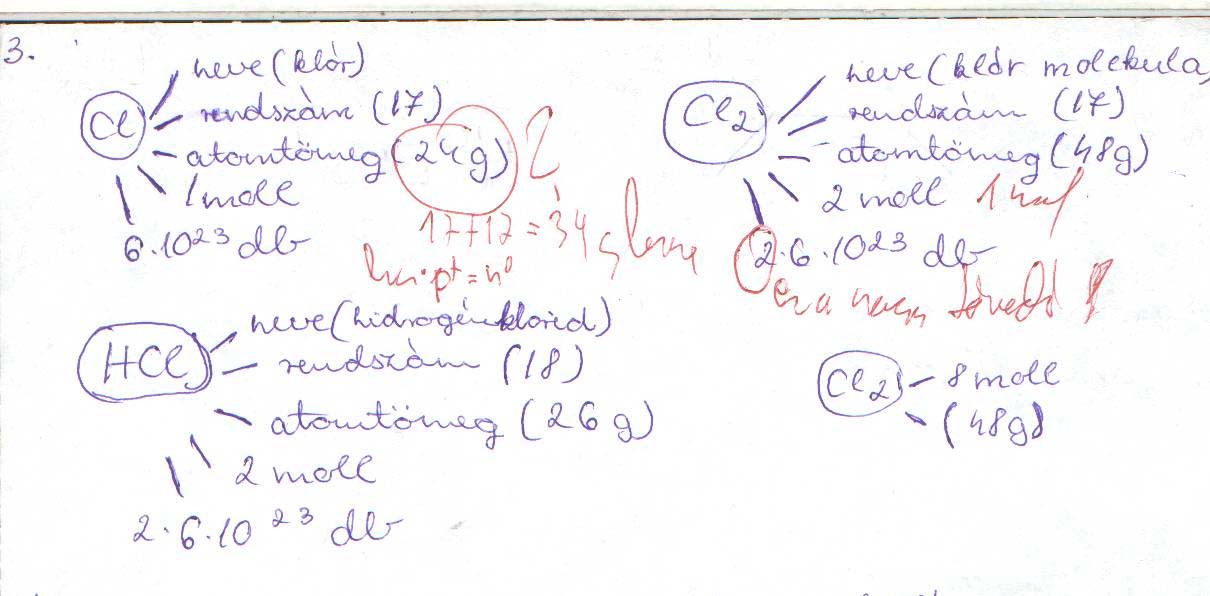 3.
neve (klór)
Cl
rendszám (17)
atomtömeg (24 g)
1 moll
6·10²³ db
17+17 = 34 g lenne
p⁺ = n⁰
neve (klór molekula)
Cl₂
rendszám (17)
atomtömeg (48g)
2 moll 1 mol
2·6·10²³ db
ez a nagy tévedés!
neve (hidrogénklorid)
HCl
rendszám (18)
atomtömeg (26 g)
2 moll
2·6·10²³ db
Cl₂
8 moll
(48g)